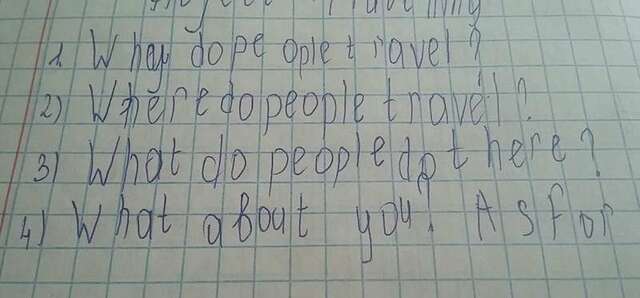 1. Whay do people travel?
2) Where do people travel?
3) What do people do there?
4) What about you? As for